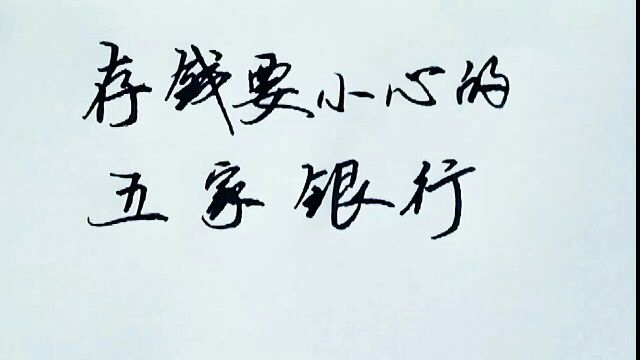 存钱要小心的
五家银行